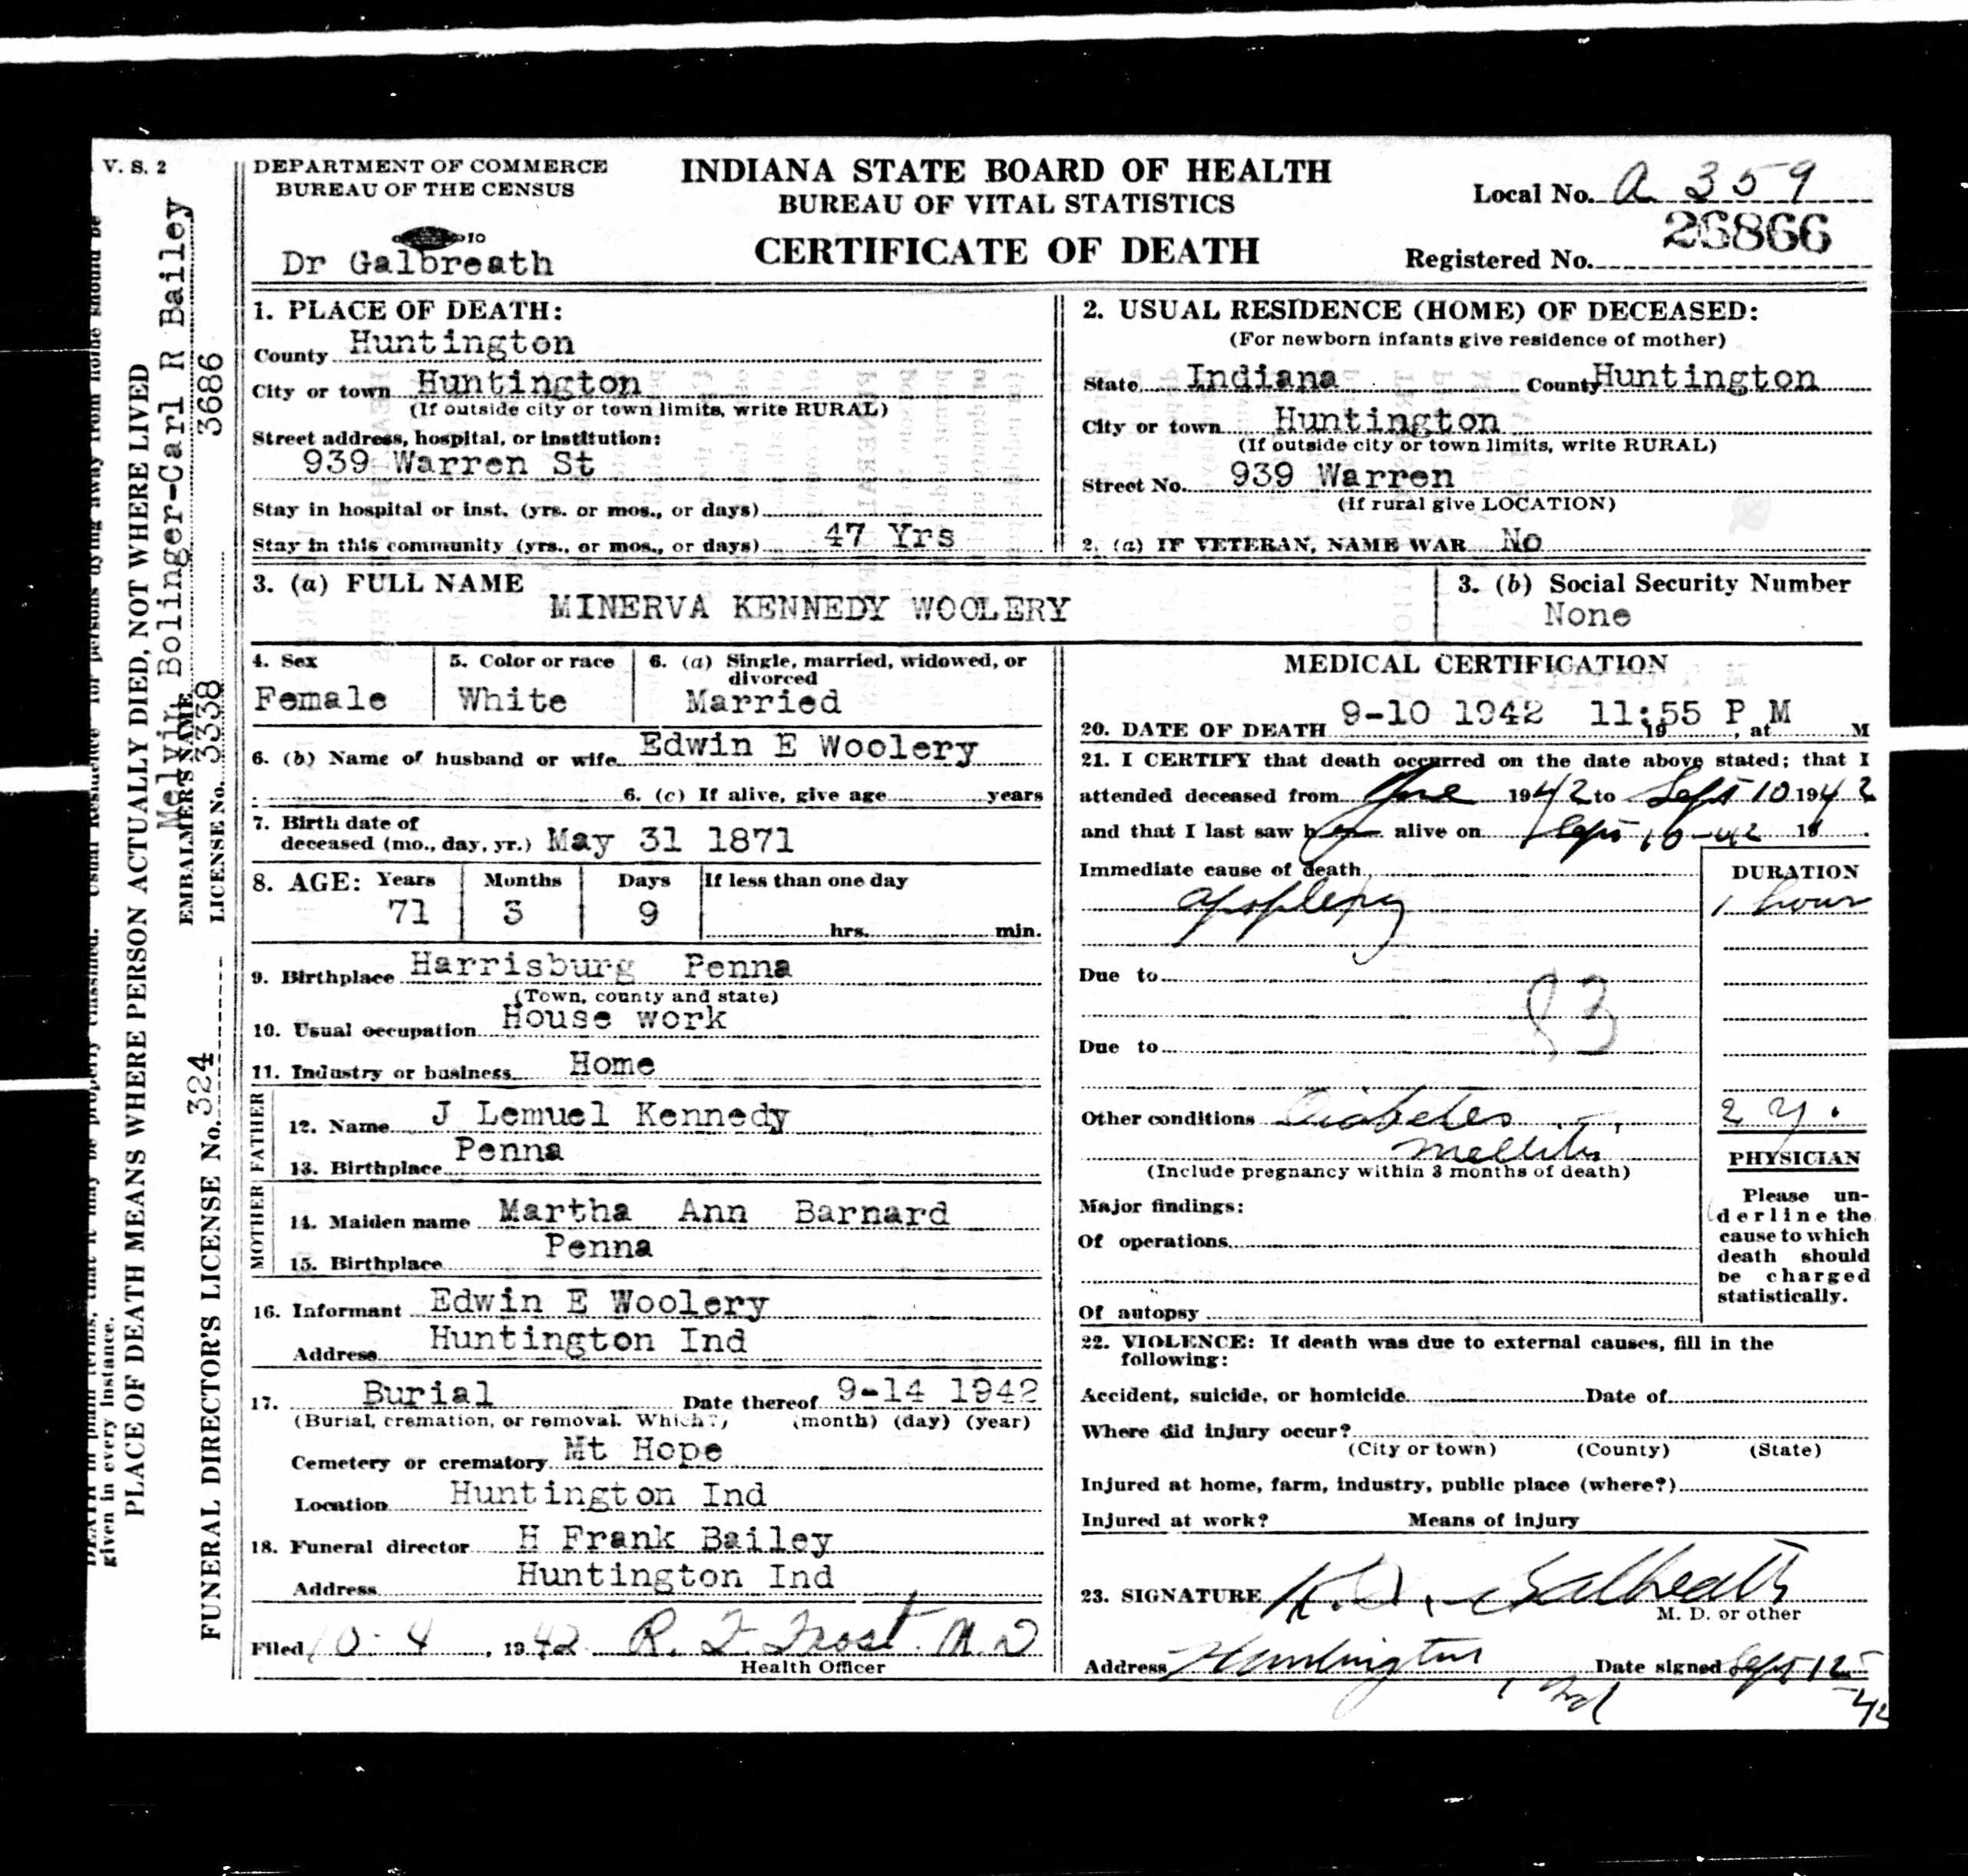 V. S. 2
DEPARTMENT OF COMMERCE
BUREAU OF THE CENSUS
Dr Galbreath
INDIANA STATE BOARD OF HEALTH
BUREAU OF VITAL STATISTICS
CERTIFICATE OF DEATH
Local No. A 359
Registered No. 26866
1. PLACE OF DEATH:
County Huntington
City or town Huntington
(If outside city or town limits, write RURAL)
Street address, hospital, or institution:
939 Warren St
Stay in hospital or inst. (yrs. or mos., or days)
Stay in this community (yrs., or mos., or days) 47 Yrs
2. USUAL RESIDENCE (HOME) OF DECEASED:
(For newborn infants give residence of mother)
State Indiana County Huntington
City or town Huntington
(If outside city or town limits, write RURAL)
Street No. 939 Warren
(If rural give LOCATION)
2. (a) IF VETERAN, NAME WAR No
3. (a) FULL NAME
MINERVA KENNEDY WOOLERY
3. (b) Social Security Number
None
4. Sex
Female
5. Color or race
White
6. (a) Single, married, widowed, or
divorced
Married
6. (b) Name of husband or wife Edwin E Woolery
6. (c) If alive, give age years
7. Birth date of
deceased (mo., day, yr.) May 31 1871
8. AGE: Years Months Days If less than one day
71 3 9 hrs. min.
9. Birthplace Harrisburg Penna
(Town, county and state)
10. Usual occupation House work
11. Industry or business Home
FATHER
12. Name J Lemuel Kennedy
13. Birthplace Penna
MOTHER
14. Maiden name Martha Ann Barnard
15. Birthplace Penna
16. Informant Edwin E Woolery
Address Huntington Ind
17. Burial Date thereof 9-14 1942
(Burial, cremation, or removal. Which?) (month) (day) (year)
Cemetery or crematory Mt Hope
Location Huntington Ind
18. Funeral director H Frank Bailey
Address Huntington Ind
Filed 10-4, 1942 R. F. Frost M.D
Health Officer
MEDICAL CERTIFICATION
20. DATE OF DEATH 9-10 1942 11:55 P M
19 , at M
21. I CERTIFY that death occurred on the date above stated; that I
attended deceased from June 1942 to Sept 10 1942
and that I last saw her alive on Sept 10-42 19 .
Immediate cause of death
apoplexy
DURATION
1 hour
Due to
83
Due to
Other conditions Diabetes
mellitus
2 y.
(Include pregnancy within 3 months of death)
Major findings:
Of operations
Of autopsy
PHYSICIAN
Please un-
derline the
cause to which
death should
be charged
statistically.
22. VIOLENCE: If death was due to external causes, fill in the
following:
Accident, suicide, or homicide Date of
Where did injury occur?
(City or town) (County) (State)
Injured at home, farm, industry, public place (where?)
Injured at work? Means of injury
23. SIGNATURE Galbreath
M. D. or other
Address Huntington Date signed Sept 12
, Ind -42
given in every instance.
PLACE OF DEATH MEANS WHERE PERSON ACTUALLY DIED, NOT WHERE LIVED
Melvin Bolinger-Carl R Bailey
EMBALMER'S NAME
LICENSE No. 3338 3686
FUNERAL DIRECTOR'S LICENSE No. 324